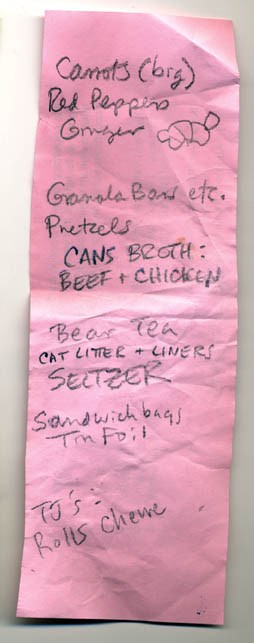 Carrots (big)
Red Peppers
Ginger
Granola Bars etc.
Pretzels
CANS BROTH:
BEEF + CHICKEN
Bear Tea
CAT LITTER + LINERS
SELTZER
Sandwich bags
Tin Foil
TJ's:
Rolls Cheese